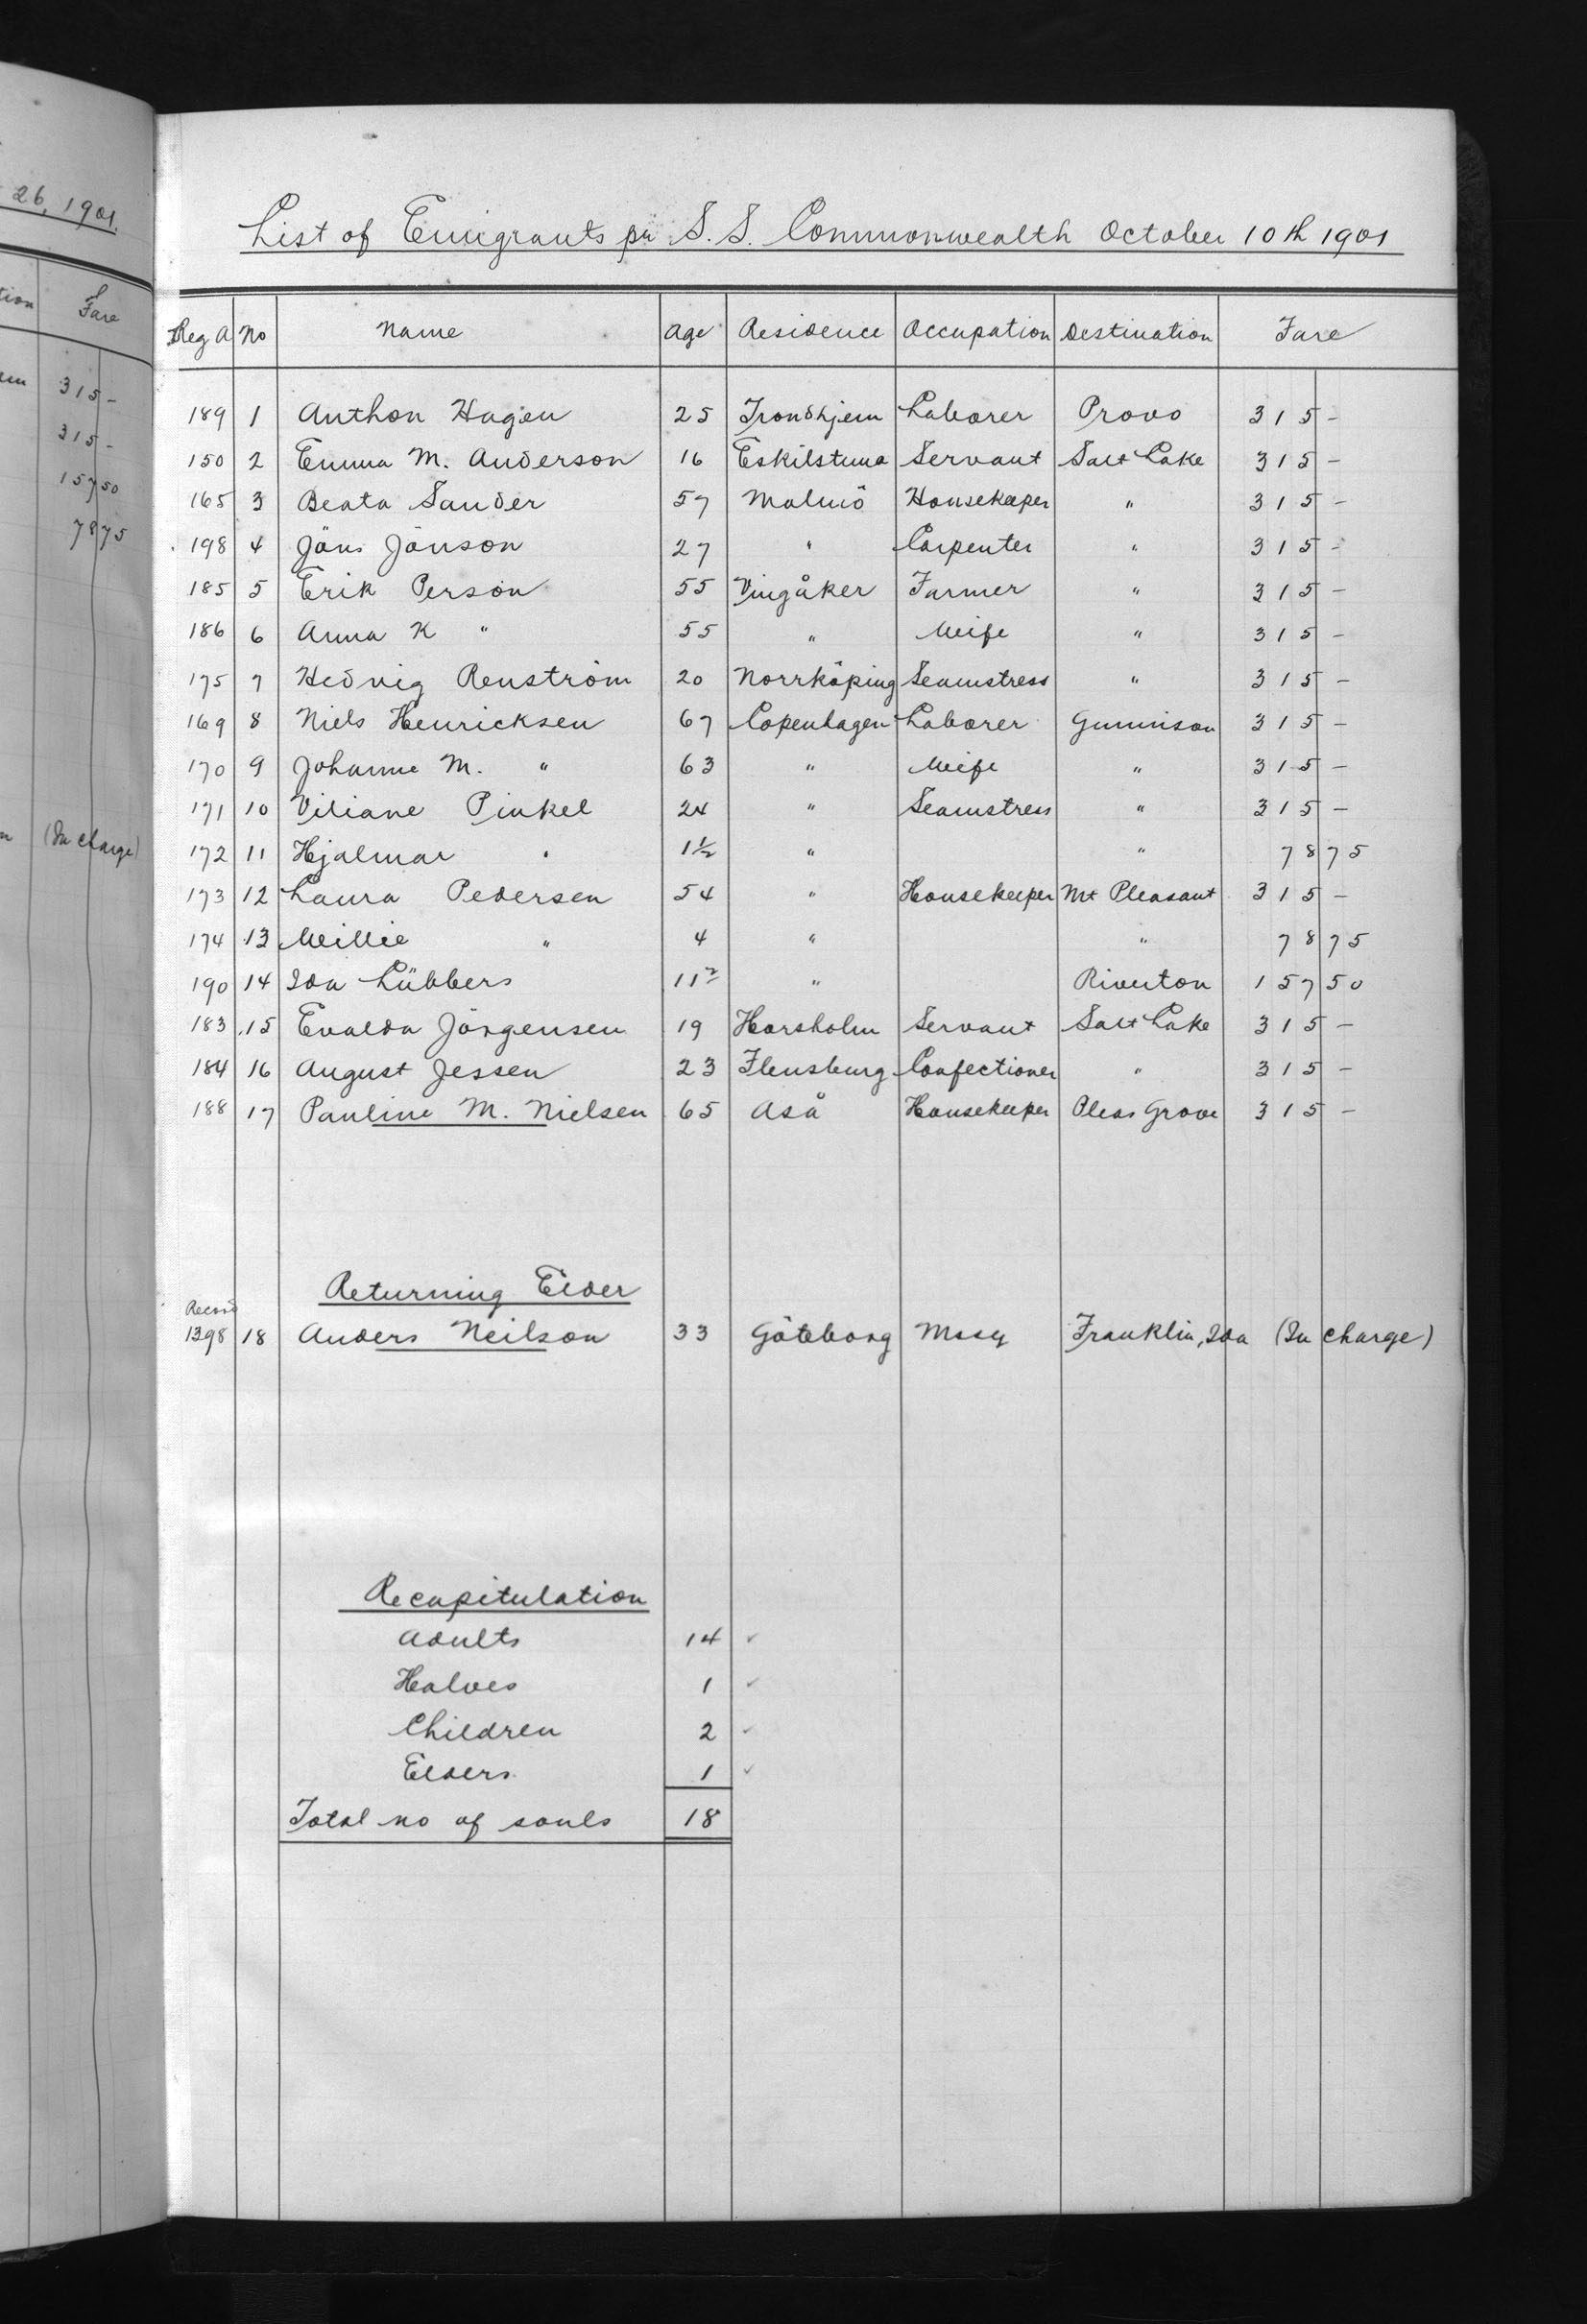 26, 1901.
Fare
315 -
315 -
157 50
78 75
(In charge)
List of Emigrants pr S. S. Commonwealth October 10th 1901
Reg A No Name Age Residence Occupation Destination Fare
189 1 Anthon Hagen 25 Trondhjem Laborer Provo 315 -
150 2 Emma M. Anderson 16 Eskilstuna Servant Salt Lake 315 -
165 3 Beata Sander 57 Malmö Housekeeper " 315 -
198 4 Jöns Jönson 27 " Carpenter " 315 -
185 5 Erik Person 55 Vingåker Farmer " 315 -
186 6 Anna K " 55 " Wife " 315 -
175 7 Hedvig Renström 20 Norrköping Seamstress " 315 -
169 8 Niels Henricksen 67 Copenhagen Laborer Gunnison 315 -
170 9 Johanne M. " 63 " Wife " 315 -
171 10 Viliane Pinkel 24 " Seamstress " 315 -
172 11 Hjalmar " 1½ " " 78 75
173 12 Laura Pedersen 54 " Housekeeper Mt Pleasant 315 -
174 13 Willie " 4 " " 78 75
190 14 Ida Lübbers 11 " Riverton 157 50
183 15 Evalda Jörgensen 19 Horsholm Servant Salt Lake 315 -
184 16 August Jessen 23 Flensburg Confectioner " 315 -
188 17 Pauline M. Nielsen 65 Aså Housekeeper Pleas Grove 315 -
Returning Elder
Record
1398 18 Anders Neilson 33 Göteborg Mssy Franklin, Ida (In charge)
Recapitulation
Adults 14 ✓
Halves 1 ✓
Children 2 ✓
Elders 1 ✓
Total no of souls 18